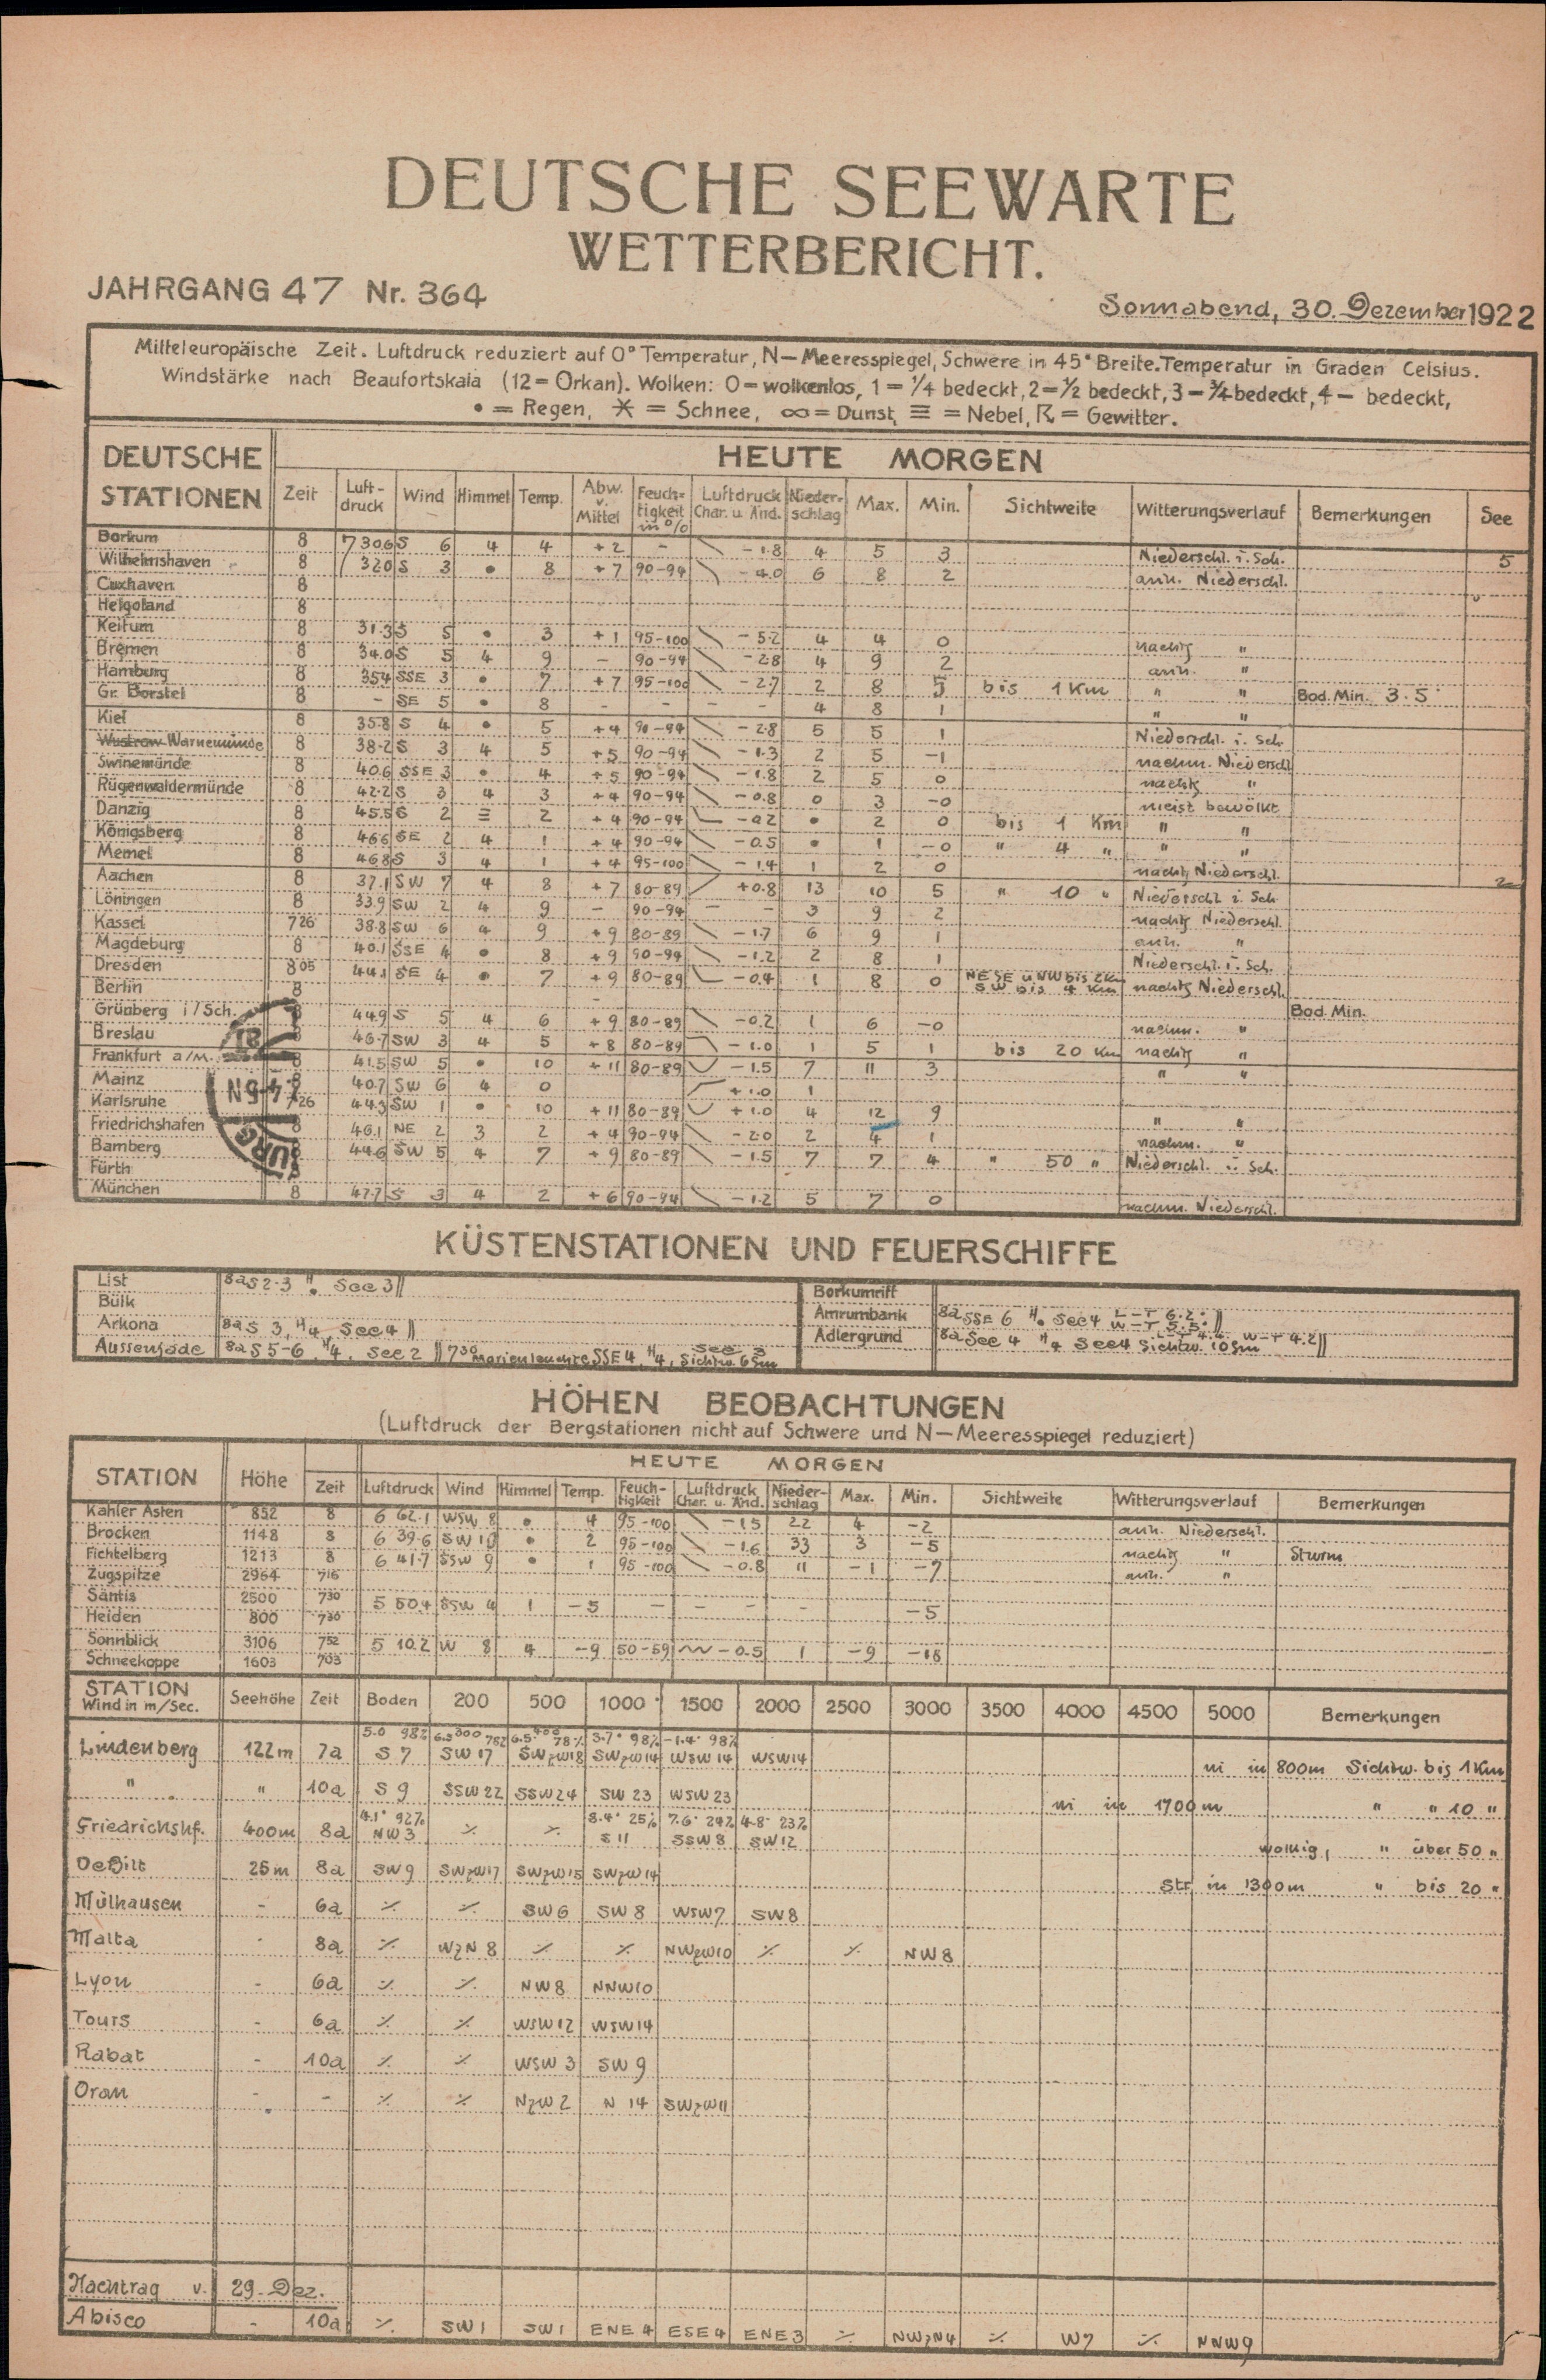 DEUTSCHE SEEWARTE
WETTERBERICHT.
JAHRGANG 47 Nr. 364
Sonnabend, 30. Dezember 1922
Mitteleuropäische Zeit. Luftdruck reduziert auf 0° Temperatur, N—Meeresspiegel, Schwere in 45° Breite. Temperatur in Graden Celsius.
Windstärke nach Beaufortskala (12=Orkan). Wolken: 0=wolkenlos, 1=¼ bedeckt, 2=½ bedeckt, 3=¾ bedeckt, 4— bedeckt,
• = Regen, ✶ = Schnee, ∞ = Dunst, ≡ = Nebel, ☈ = Gewitter.
DEUTSCHE STATIONEN HEUTE MORGEN
Zeit Luft-druck Wind Himmel Temp. Abw. v. Mittel Feuch-tigkeit in % Luftdruck Char. u. Änd. Nieder-schlag Max. Min. Sichtweite Witterungsverlauf Bemerkungen See
Borkum 8 730.6 S 6 4 4 +2 - -1.8 4 5 3 Niederschl. i. Sch. 5
Wilhelmshaven 8 32.0 S 3 • 8 +7 90-94 -4.0 6 8 2 anh. Niederschl.
Cuxhaven 8
Helgoland 8
Keitum 8 31.3 S 5 • 3 +1 95-100 -5.2 4 4 0 nachts "
Bremen 8 34.0 S 5 4 9 - 90-94 -2.8 4 9 2 anh. "
Hamburg 8 35.4 SSE 3 • 7 +7 95-100 -2.7 2 8 5 bis 1 Km " " Bod. Min. 3.5
Gr. Borstel 8 - SE 5 • 8 - - - - 4 8 1 " "
Kiel 8 35.8 S 4 • 5 +4 90-94 -2.8 5 5 1 Niederschl. i. Sch.
Wustrow Warnemünde 8 38.2 S 3 4 5 +5 90-94 -1.3 2 5 -1 nachm. Niederschl.
Swinemünde 8 40.6 SSE 3 • 4 +5 90-94 -1.8 2 5 0 nachts "
Rügenwaldermünde 8 42.2 S 3 4 3 +4 90-94 -0.8 0 3 -0 meist bewölkt
Danzig 8 45.5 S 2 ≡ 2 +4 90-94 -0.2 • 2 0 bis 1 Km " "
Königsberg 8 46.6 SE 2 4 1 +4 90-94 -0.5 • 1 -0 " 4 " " "
Memel 8 46.8 S 3 4 1 +4 95-100 -1.4 1 2 0 nachts Niederschl. 2
Aachen 8 37.1 SW 7 4 8 +7 80-89 +0.8 13 10 5 " 10 " Niederschl. i. Sch.
Löningen 8 33.9 SW 2 4 9 - 90-94 - - 3 9 2 nachts Niederschl.
Kassel 726 38.8 SW 6 4 9 +9 80-89 -1.7 6 9 1 anh. "
Magdeburg 8 40.1 SSE 4 • 8 +9 90-94 -1.2 2 8 1 Niederschl. i. Sch.
Dresden 805 44.1 SE 4 • 7 +9 80-89 -0.4 1 8 0 NE SE u NW bis 2 Km SW bis 4 Km nachts Niederschl.
Berlin 8
Grünberg i/Sch. 8 44.9 S 5 4 6 +9 80-89 -0.2 1 6 -0 nachm. " Bod. Min.
Breslau 46.7 SW 3 4 5 +8 80-89 -1.0 1 5 1 bis 20 Km nachts "
Frankfurt a/M. 8 41.5 SW 5 • 10 +11 80-89 -1.5 7 11 3 " "
Mainz 40.7 SW 6 4 0 +1.0 1
Karlsruhe 726 44.3 SW 1 • 10 +11 80-89 +1.0 4 12 9 " "
Friedrichshafen 8 46.1 NE 2 3 2 +4 90-94 -2.0 2 4 1 nachm. "
Bamberg 8 44.6 SW 5 4 7 +9 80-89 -1.5 7 7 4 " 50 " Niederschl. i. Sch.
Fürth 8
München 8 47.7 S 3 4 2 +6 90-94 -1.2 5 7 0 nachm. Niederschl.
KÜSTENSTATIONEN UND FEUERSCHIFFE
List 8a S 2-3 H. See 3 ||
Bülk
Arkona 8a S 3, H4, See 4 ||
Aussenjade 8a S 5-6, H4, See 2 || 730 Marienleuchte SSE 4, H4, See 3 Sichtw. 6 Sm
Borkumriff
Amrumbank 8a SSE 6 H. See 4 L-T 6.2° W-T 5.5° ||
Adlergrund 8a See 4 H4 See 4 L-T 4.4 W-T 4.2 Sichtw. 10 Sm ||
HÖHEN BEOBACHTUNGEN
(Luftdruck der Bergstationen nicht auf Schwere und N—Meeresspiegel reduziert)
STATION Höhe HEUTE MORGEN
Zeit Luftdruck Wind Himmel Temp. Feuch-tigkeit Luftdruck Char. u. Änd. Nieder-schlag Max. Min. Sichtweite Witterungsverlauf Bemerkungen
Kahler Asten 852 8 662.1 WSW 8 • 4 95-100 -1.5 22 4 -2 anh. Niederschl.
Brocken 1148 8 639.6 SW 10 • 2 95-100 -1.6 33 3 -5 nachts " Sturm
Fichtelberg 1213 8 641.7 SSW 9 • 1 95-100 -0.8 11 -1 -7 anh. "
Zugspitze 2964 716
Säntis 2500 730 550.4 SSW 4 1 -5 - - - - -5
Heiden 800 730
Sonnblick 3106 752 510.2 W 8 4 -9 50-59 -0.5 1 -9 -18
Schneekoppe 1603 703
STATION Wind in m/Sec. Seehöhe Zeit Boden 200 500 1000 1500 2000 2500 3000 3500 4000 4500 5000 Bemerkungen
5.0 98% 6.3 300 78% 6.5° 400 78% 3.7° 98% -1.4° 98%
Lindenberg 122m 7a S 7 SW 17 SWzW18 SWzW14 WSW 14 WSW14 ni in 800m Sichtw. bis 1 Km
" " 10a S 9 SSW 22 SSW 24 SW 23 WSW 23 ni in 1700m " " 10 "
4.1° 92% 8.4° 25% 7.6° 24% 4.8° 23%
Friedrichshf. 400m 8a NW 3 ٪ ٪ S 11 SSW 8 SW 12 wolkig, " über 50 "
DeBilt 25m 8a SW 9 SWzW17 SWzW15 SWzW14 Str in 1300m " bis 20 "
Mülhausen - 6a ٪ ٪ SW 6 SW 8 WSW7 SW 8
Malta - 8a ٪ WzN 8 ٪ ٪ NWzW10 ٪ ٪ NW 8
Lyon - 6a ٪ ٪ NW 8 NNW10
Tours - 6a ٪ ٪ WSW12 WSW14
Rabat - 10a ٪ ٪ WSW 3 SW 9
Oran - - ٪ ٪ NzW 2 N 14 SWzW11
Nachtrag v. 29. Dez.
Abisco - 10a ٪ SW 1 SW 1 ENE 4 ESE 4 ENE 3 ٪ NWzN4 ٪ W 7 ٪ NNW9